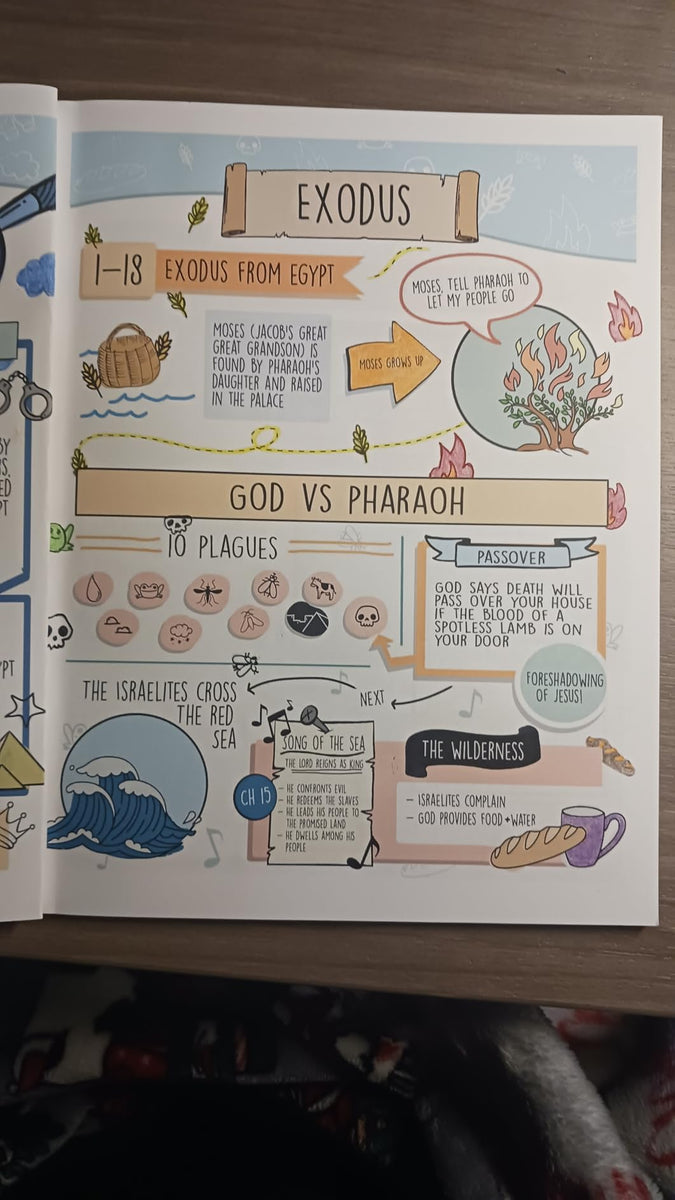 EXODUS
1-18 EXODUS FROM EGYPT
MOSES, TELL PHARAOH TO
LET MY PEOPLE GO
MOSES (JACOB'S GREAT
GREAT GRANDSON) IS
FOUND BY PHARAOH'S
DAUGHTER AND RAISED
IN THE PALACE
MOSES GROWS UP
GOD VS PHARAOH
10 PLAGUES
PASSOVER
GOD SAYS DEATH WILL
PASS OVER YOUR HOUSE
IF THE BLOOD OF A
SPOTLESS LAMB IS ON
YOUR DOOR
FORESHADOWING
OF JESUS!
NEXT
THE ISRAELITES CROSS
THE RED
SEA
CH 15
SONG OF THE SEA
THE LORD REIGNS AS KING
- HE CONFRONTS EVIL
- HE REDEEMS THE SLAVES
- HE LEADS HIS PEOPLE TO
THE PROMISED LAND
- HE DWELLS AMONG HIS
PEOPLE
THE WILDERNESS
- ISRAELITES COMPLAIN
- GOD PROVIDES FOOD + WATER